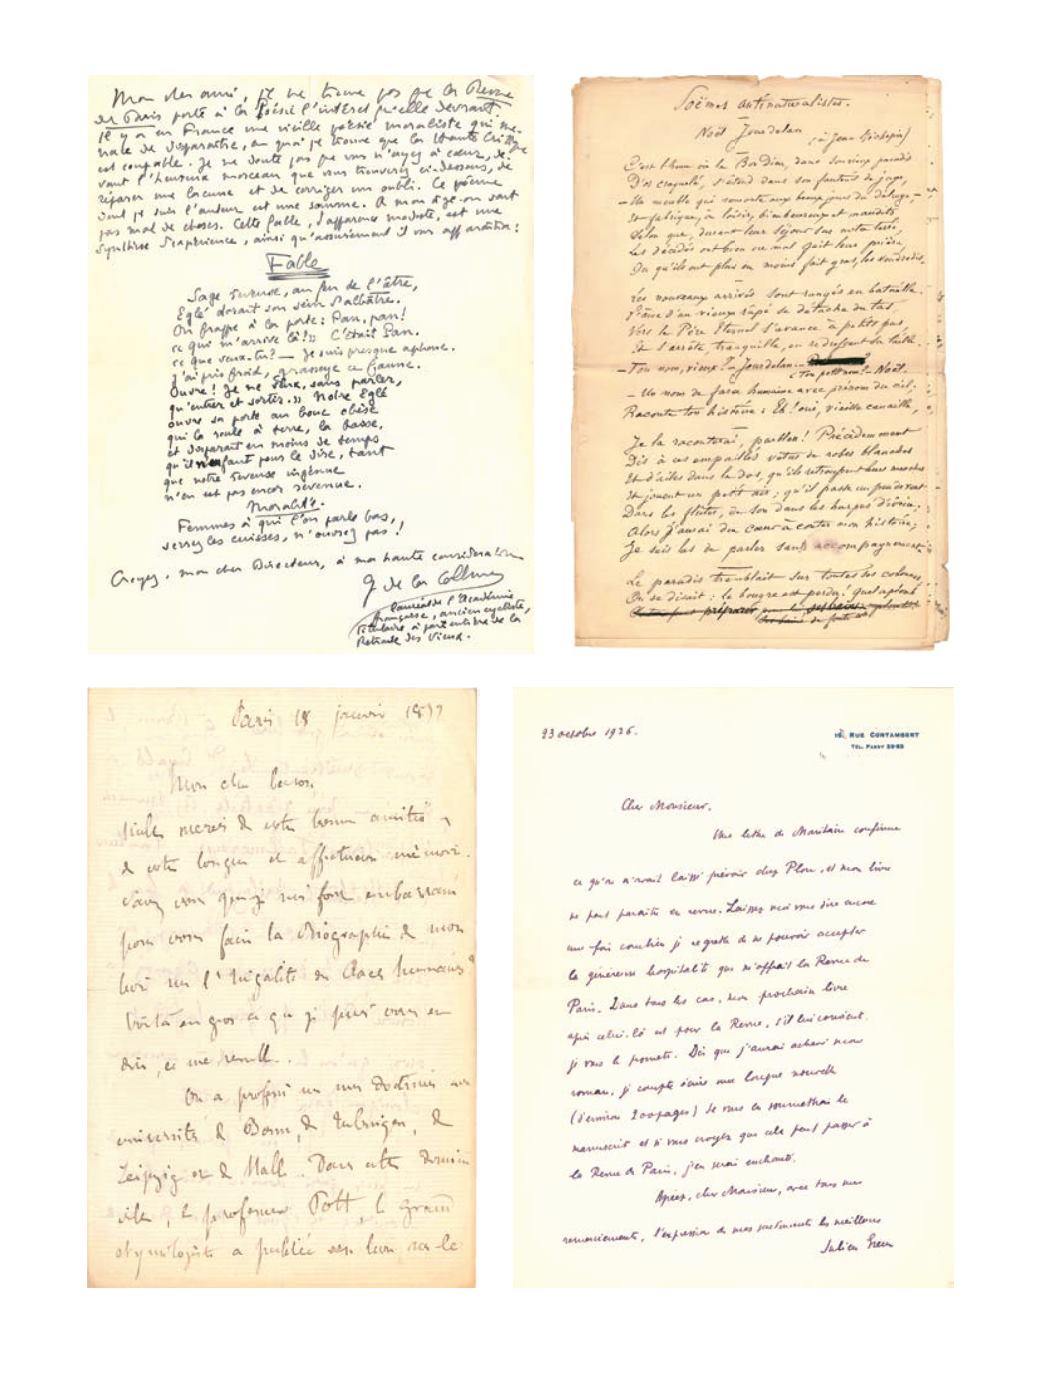 Mon cher ami, je ne trouve pas que la Revue
de Paris porte à la Poésie l'intérêt qu'elle devrait.
Il y a en France une vieille poésie moraliste qui me-
nace de disparaître, en quoi je trouve que la Haute Critique
est coupable. Je ne doute pas que vous n'ayez à cœur, de-
vant l'heureux morceau que vous trouverez ci-dessous, de
réparer une lacune et de corriger un oubli. Ce poème
dont je suis l'auteur est une somme. A mon âge on sait
pas mal de choses. Cette fable, d'apparence modeste, est une
synthèse d'expérience, ainsi qu'assurément il vous apparaîtra :
Fable
Sage rêveuse, au feu de l'âtre,
Eglé dorait son sein d'albâtre.
On frappe à la porte : Pan, pan !
ce qui m'arrive là ! » C'était Pan.
ce que veux-tu ? — Je suis presque aphone.
J'ai pris froid, grasseye ce faune.
Ouvre ! Je ne veux, sans parler,
qu'entrer et sortir. » Notre Eglé
ouvre sa porte au bouc obèse
qui la roule à terre, la baise,
et disparaît en moins de temps
qu'il n'en faut pour le dire, tant
que notre rêveuse ingénue
n'en est pas encor revenue.
Moralité.
Femmes à qui l'on parle bas,
serrez les cuisses, n'ouvrez pas !
Croyez, mon cher Directeur, à ma haute considération
G de la
lauréat de l'Académie
française, ancien cycliste,
titulaire à part entière de la
Retraite des Vieux.
Poëmes antinaturalistes.
Noël Jourdelan
(à Jean Richepin)
C'est l'heure où le Bon Dieu, dans son vieux paradis
D'or craquelé, s'étend dans son fauteuil de juge,
— Un meuble qui remonte aux beaux jours du déluge, —
Et fabrique, à loisir, bienheureux et maudits
Selon que, durant leur séjour sur notre terre,
Les décédés ont bien ou mal fait leur prière,
Ou qu'ils ont plus ou moins fait gras, les vendredis.
Les nouveaux arrivés sont rangés en bataille.
vieux râpé se détache du tas,
Vers le Père Eternel s'avance à petits pas,
Et s'arrête, tranquille, en redressant sa taille.
— Ton nom, vieux ? — Jourdelan.
— Ton petit nom ? — Noël.
— Un nom de farce humaine avec prénom du ciel.
Raconte ton histoire : Eh ! oui, vieille canaille,
Je la raconterai, parbleu ! Précédemment
Dis à ces empaillés vêtus de robes blanches
Et d'ailes dans le dos, qu'ils retroussent leurs manches
Et jouent un petit air ; qu'il passe un
Dans les flûtes, du son dans les harpes d'ivoire ;
Alors j'aurai du cœur à conter mon histoire ;
Je suis las de parler sans accompagnement.
Le paradis tremblait sur toutes ses colonnes,
On se disait : le bougre est perdu. Quel aplomb
Paris 18 janvier
Mon cher baron,
Mille mercis de votre bonne amitié et
de votre longue et affectueuse mémoire.
Savez vous que je suis fort embarrassé
pour vous faire la Biographie de mon
livre sur l'Inégalité des Races humaines ?
Voilà en gros ce que je puis vous en
dire, et me
On a professé sur mes doctrines aux
universités de Bonn, de Tubingen, de
Leipzig et de Hall. Dans cette dernière
ville, le professeur Pott, le grand
étymologiste a publié un livre sur le
23 octobre 1926.
RUE CORTAMBERT
TEL. PASSY
Cher Monsieur,
Une lettre de Maritain confirme
ce qu'on m'avait laissé prévoir chez Plon, et mon livre
ne peut paraître en revue. Laissez-moi vous dire encore
une fois combien je regrette de ne pouvoir accepter
la généreuse hospitalité que m'offrait la Revue de
Paris. Dans tous les cas, mon prochain livre
après celui-là est pour la Revue, s'il lui convient.
je vous le promets. Dès que j'aurai achevé mon
roman, je compte écrire une longue nouvelle
(d'environ 200 pages) Je vous en soumettrai le
manuscrit et si vous croyez que cela peut passer à
la Revue de Paris, j'en serai enchanté.
Agréez, cher Monsieur, avec tous mes
remerciements, l'expression de mes sentiments les meilleurs
Julien Green